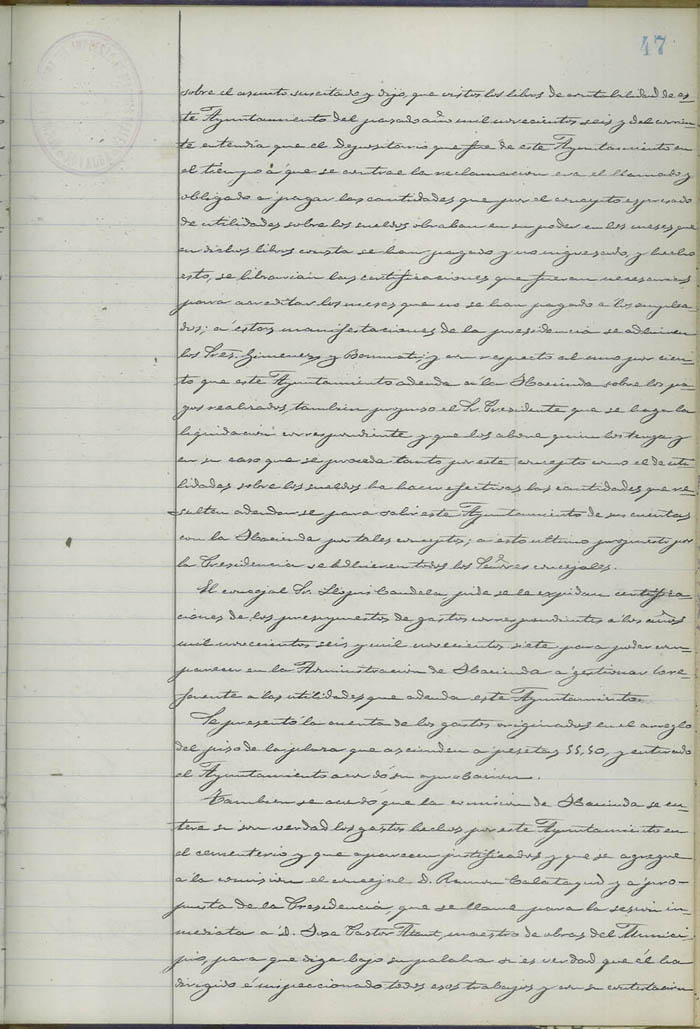 47
sobre el asunto suscitado y dijo, que vistos los libros de contabilidad de es-
te Ayuntamiento del pasado año mil novecientos seis y del corrien-
te entendia que el Depositario que fue de este Ayuntamiento en
el tiempo á que se contrae la reclamacion era el llamado y
obligado a pagar las cantidades que por el concepto espresado
de utilidades sobre los sueldos obraban en su poder en los meses que
en dichos libros consta se han pagado y no ingresado, y hecho
esto, se librarian las certificaciones que fueran necesarias
para acreditar los meses que no se han pagado a los emplea-
dos; a estas manifestaciones de la presidencia se adhieren
los Sres. Gimenez y Bonmati; y con respecto al uno por cien-
to que este Ayuntamiento adeuda a la Hacienda sobre los pa-
gos realizados, tambien propuso el Sr. Presidente que se haga la
liquidacion correspondiente y que los abone quien los tenga y
en su caso que se proceda tanto por este concepto como el de uti-
lidades sobre los sueldos ha hacer efectivas las cantidades que re-
sulten adeudarse para este Ayuntamiento de sus cuentas
con la Hacienda por tales conceptos; a esto ultimo propuesto por
la Presidencia se adhieren todos los Señores concejales.
El concejal Sr. Llopis Candela pide se le espidan certifica-
ciones de los presupuestos de gastos correspondientes a los años
mil novecientos seis y mil novecientos siete para poder com-
parecer en la Administracion de Hacienda a gestionar lo re-
ferente a las utilidades que adeuda este Ayuntamiento.
Se presentó la cuenta de los gastos originados en el arreglo
del piso de la plaza que ascienden a pesetas 55,50, y enterado
el Ayuntamiento acordó su aprobacion.
Tambien se acordó que la comision de Hacienda se en-
tere si son verdad los gastos hechos por este Ayuntamiento en
el cementerio y que aparecen justificados y que se agregue
a la comision el concejal D. Ramon Calatayud y a pro-
puesta de la Presidencia, que se llame para la sesion in-
mediata a D. Jose Pastor, maestro de obras del Munici-
pio, para que diga bajo su palabra si es verdad que él ha
dirigido é inspeccionado todos esos trabajos y con su contestacion